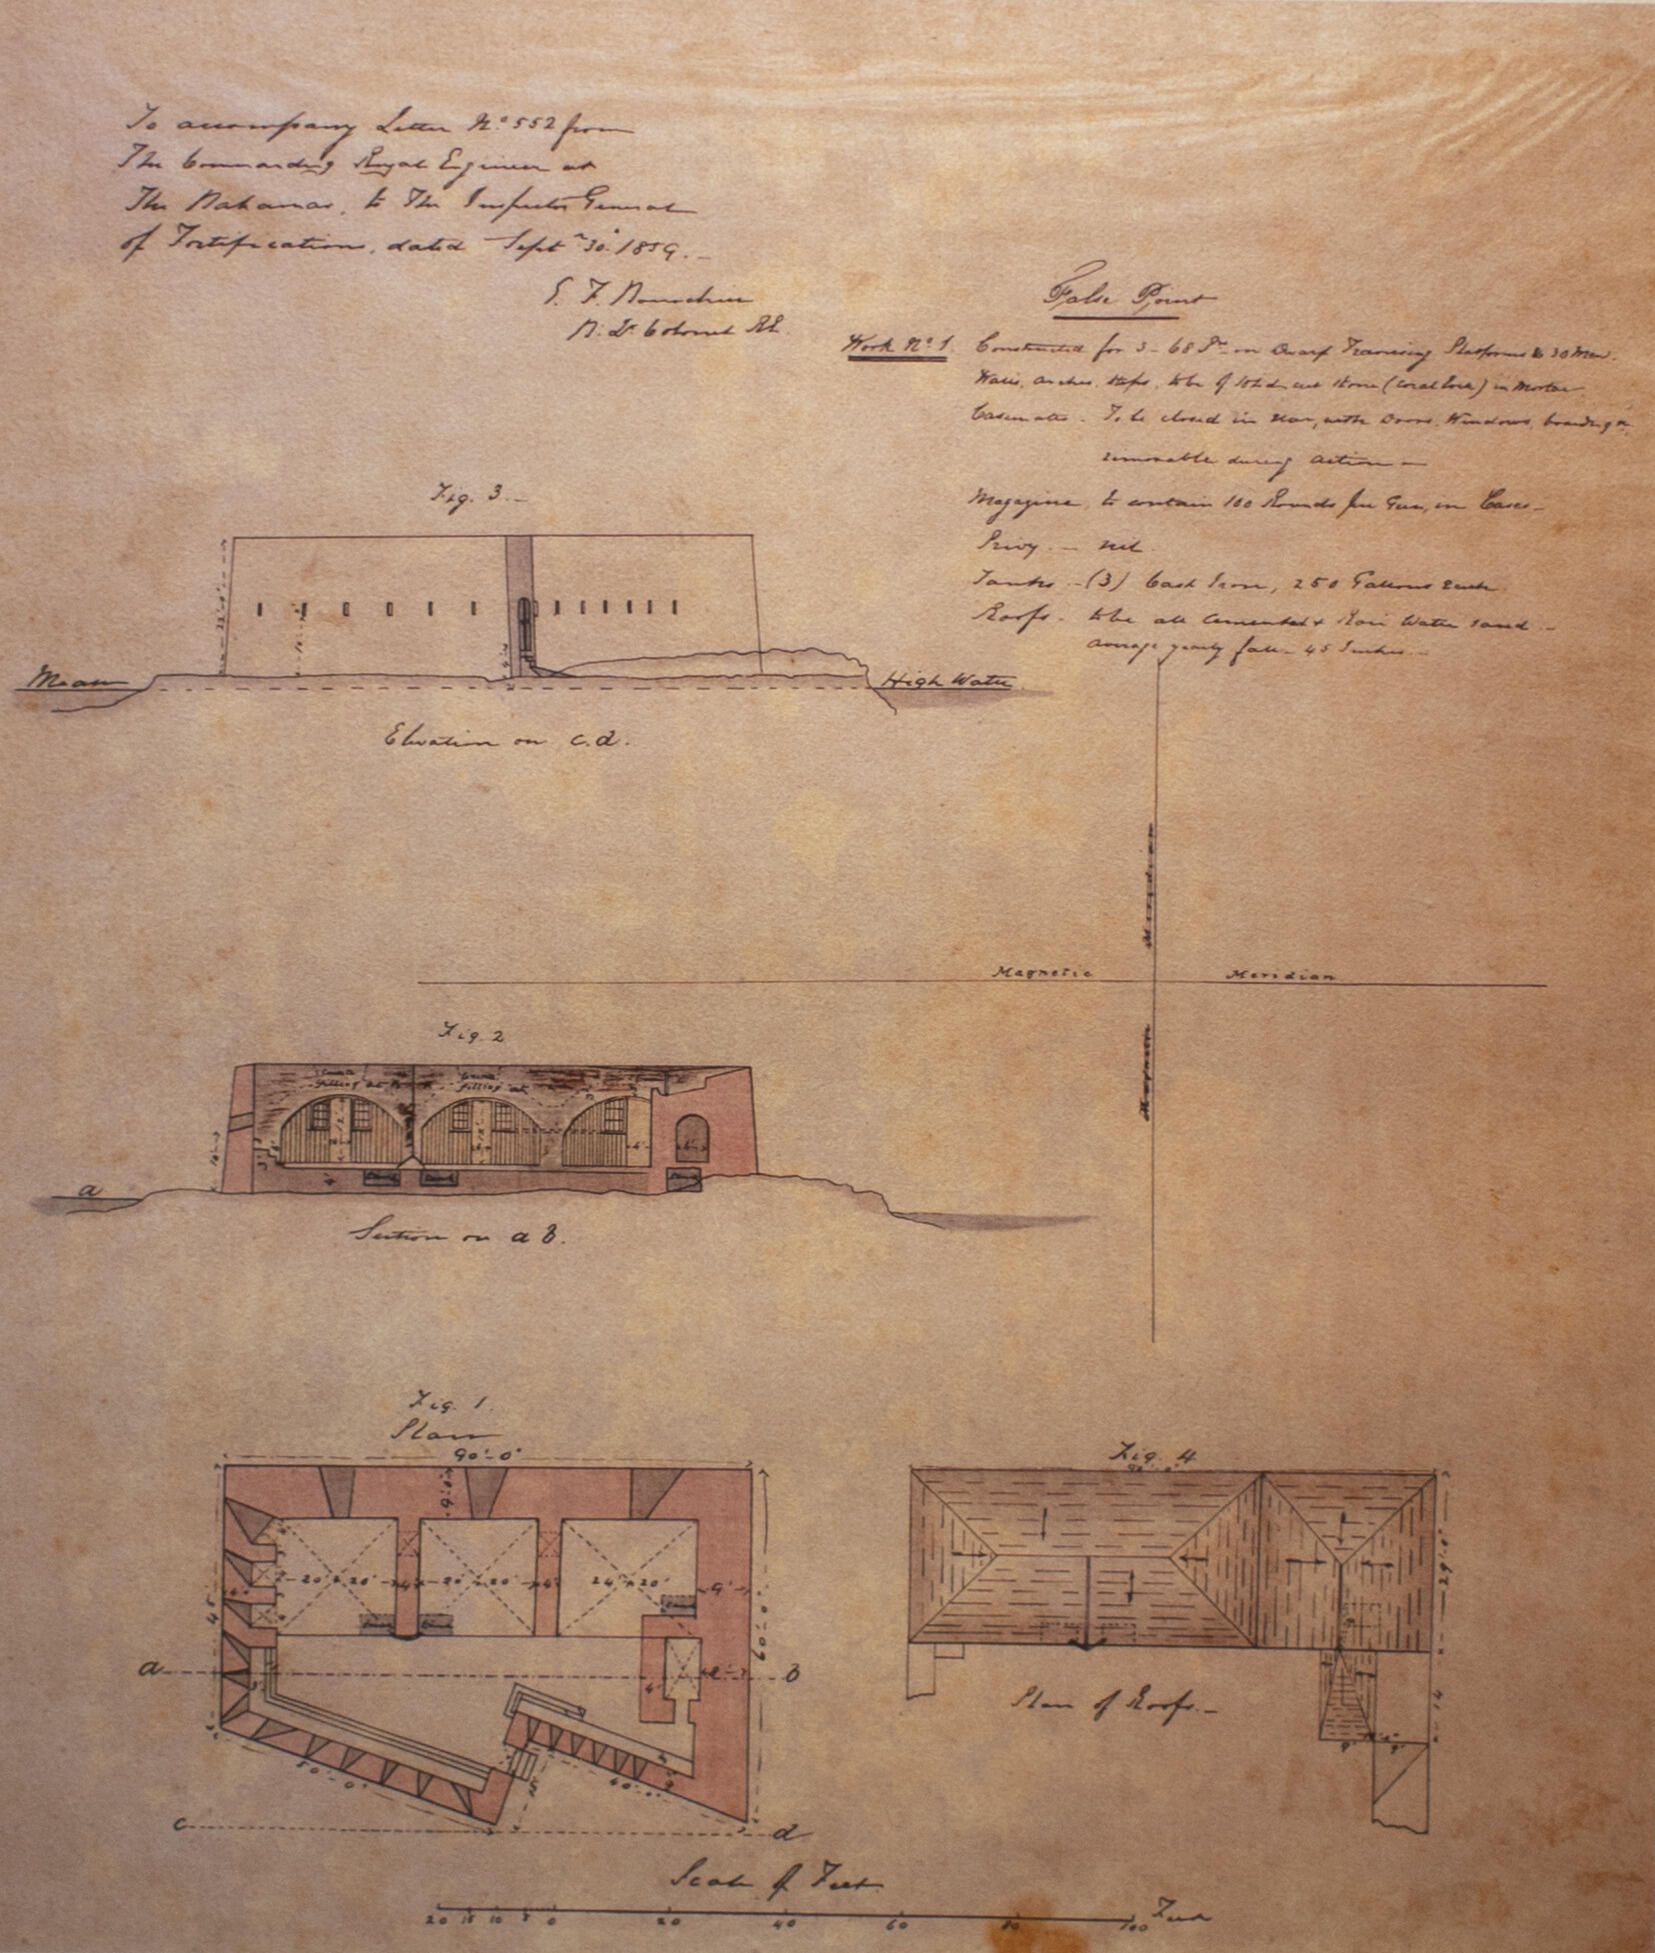 To accompany Letter No. 552 from
The Commanding Royal Engineer at
The Bahamas, to The Inspector General
of Fortifications, dated Septr. 30. 1859.
Colonel RE.
False Point
Work No. 1. Constructed for 3 - 68 Pr. on Dwarf Traversing Platforms & 30 Men.
Walls, arches, steps, to be of solid cut stone (Coral Rock) in Mortar
Casemates - To be closed in rear, with Doors, Windows, boarding
removable during action -
Magazine, to contain 100 Rounds per Gun, in Cases -
Privy - nil.
Tanks - (3) Cast Iron, 250 Gallons each
Roofs - to be all cemented & Rain Water saved -
average yearly fall - 45 Inches -
Fig. 3.
Mean
High Water
Elevation on c.d.
Magnetic Meridian
Magnetic Meridian
Fig. 2
filling
filling
a
Section on a b.
Fig. 1.
Plan
90'-0"
9'-0"
20' × 20' 4' 20' × 20' 4' 24' × 20' 9'
45
60'-0"
a
b
50'-0"
40'-0"
c
d
Fig. 4
29'-0"
14
Plan of Roofs.
Scale of Feet
20 15 10 5 0 20 40 60 80 100 Feet